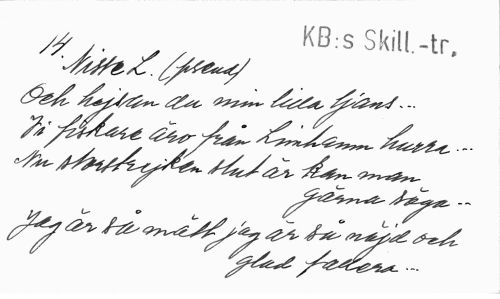 KB:s Skill.-tr.
14.
Nisse L. (pseud)
Och hejsan du min lilla tjans...
Vi fiskare äro från Limhamn hurra...
Nu storstrejken slut är kan man
gärna säga...
Jag är så mätt jag är så nöjd och
glad fallera...